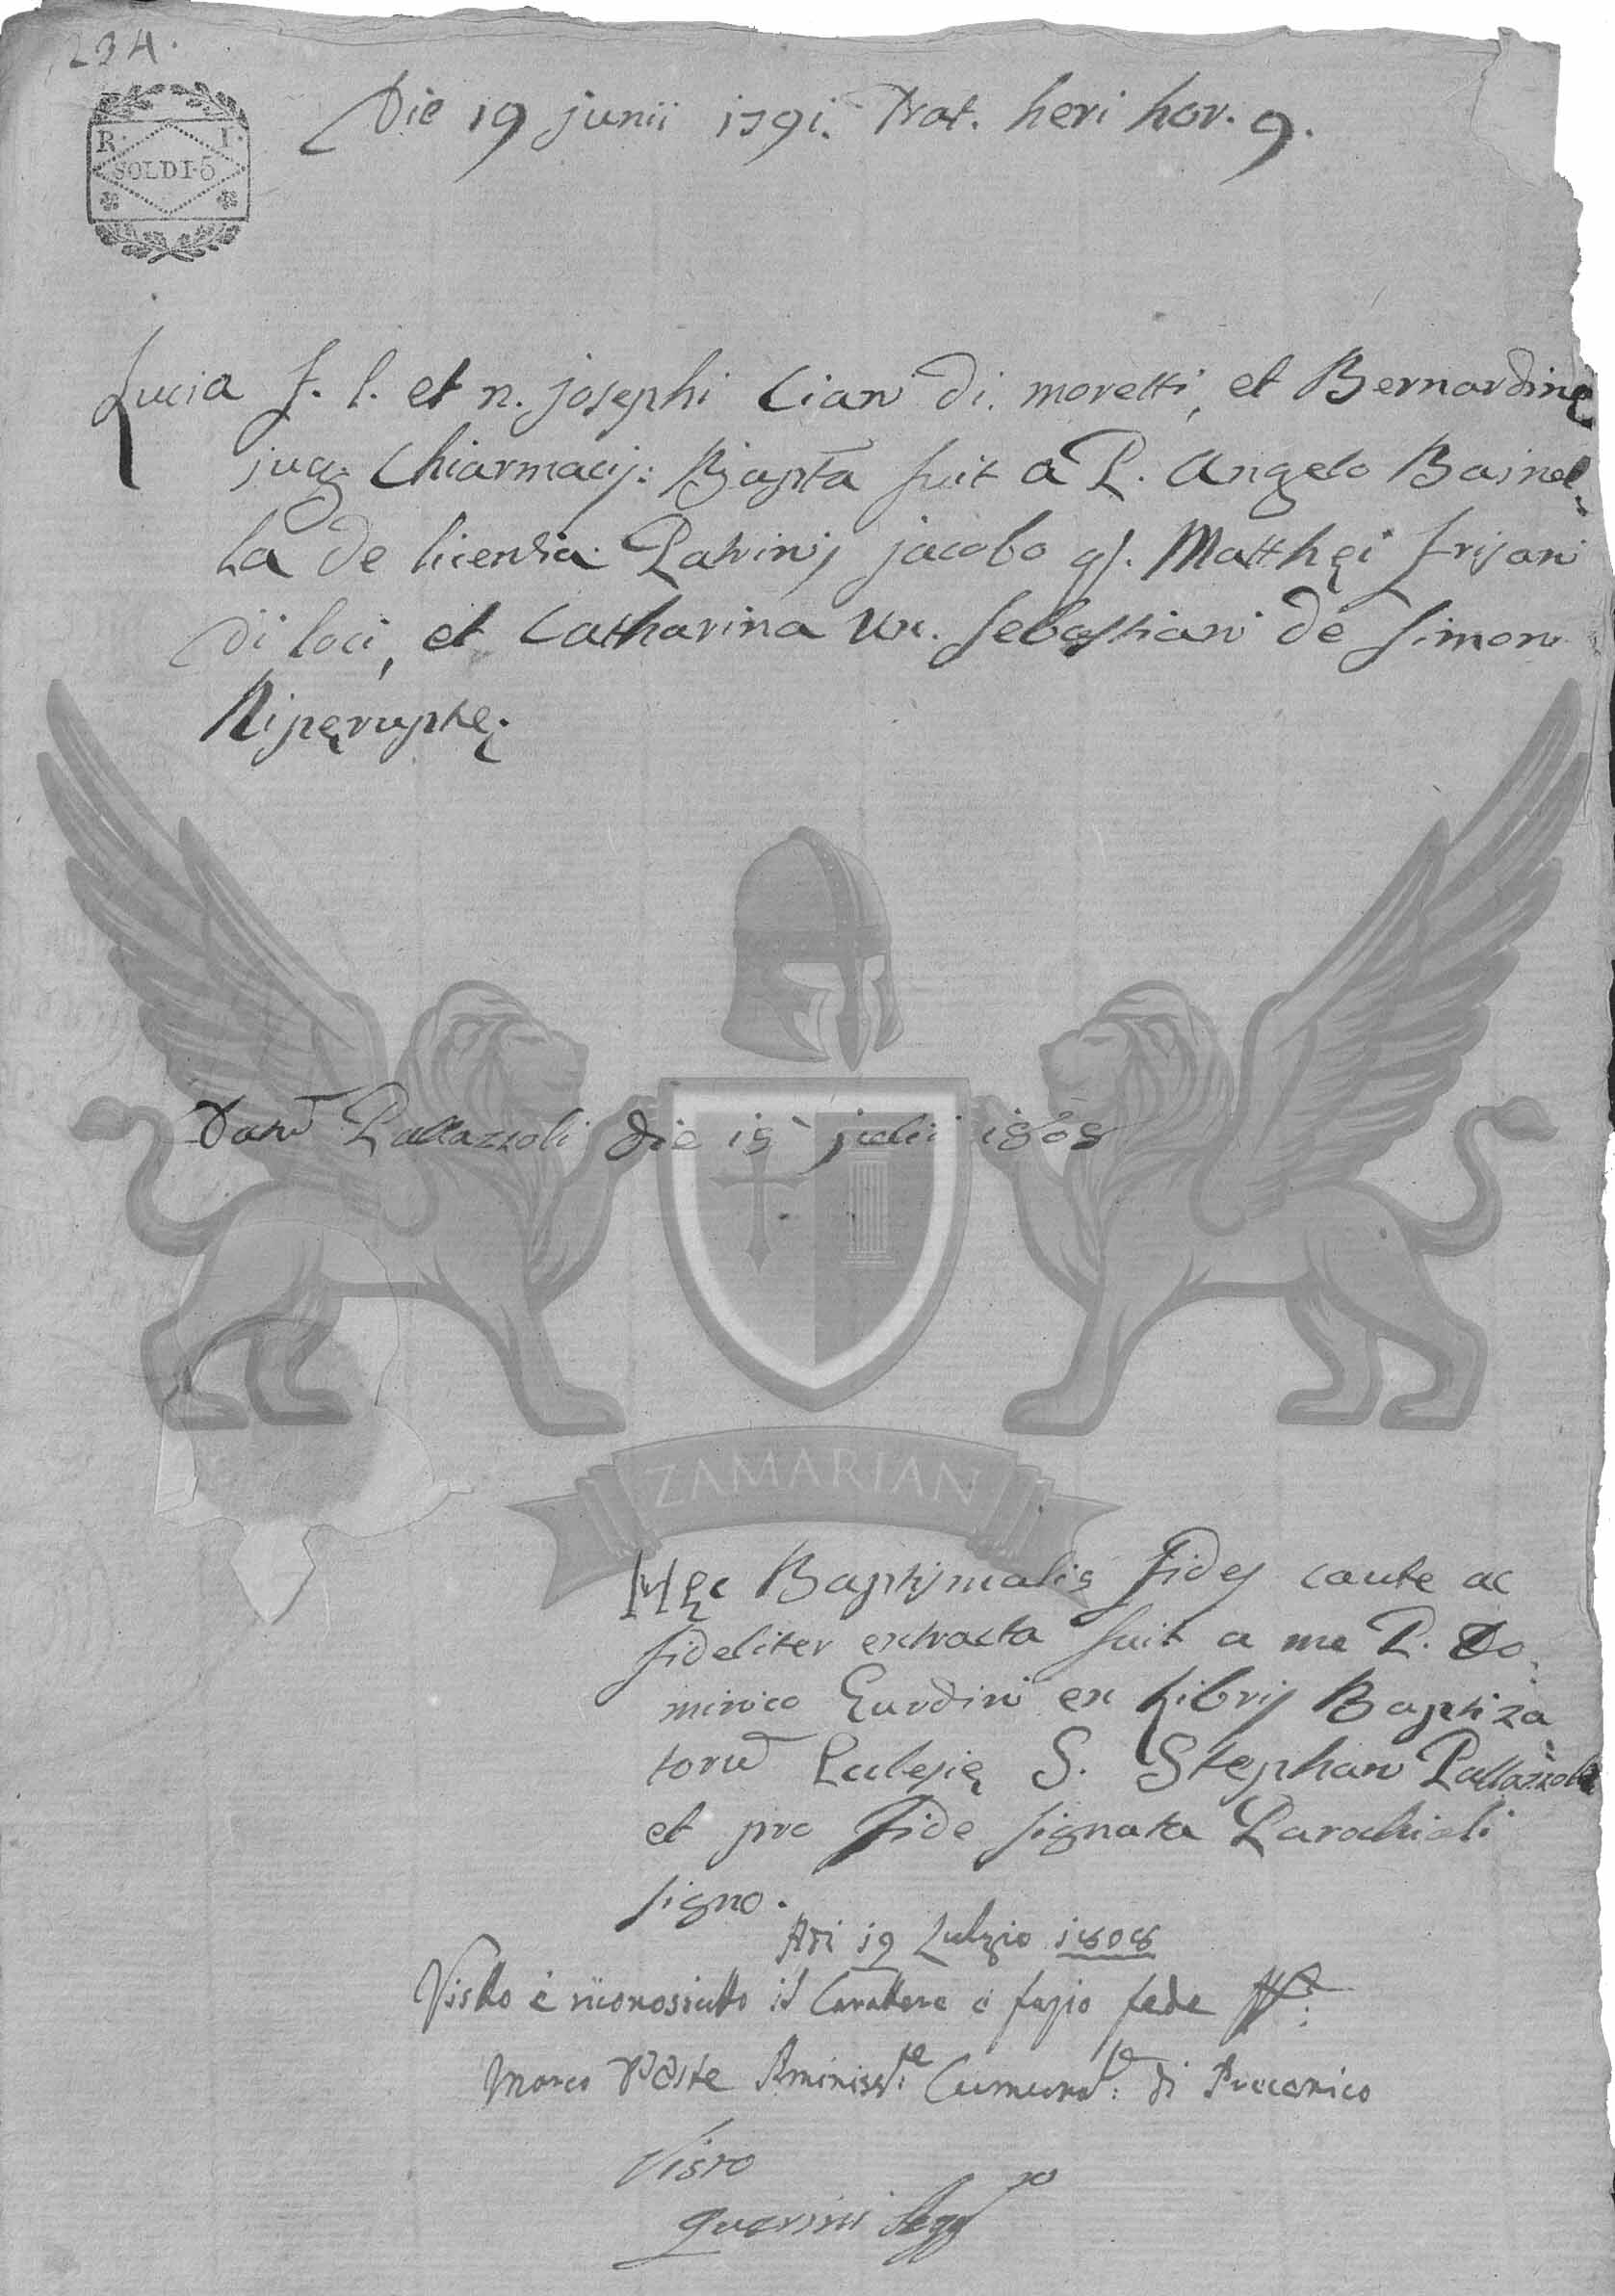 234.
R. I.
SOLDI·5
Die 19 junii 1791. Nat. heri hor. 9.
Lucia f. l. et n. josephi Cian di. moretti, et Bernardinę
jug. Chiarmacij: Bapta fuit a P. Angelo Bainel
la de licentia. Patrinj jacobo qs. Matthęi frisan
di loci, et Catharina Ux. Sebastiani de Simon
Ripęruptę.
Datū Pallazzoli die 19 julii 1808
ZAMARIAN
Hęc Baptismalis fides caute ac
fideliter extracta fuit a me P. Do
minico Gurdini ex Libris Baptiza
torū Eclesię S. Stephani Pallazzoli
et pro fide signata Parochiali
signo.
Adi 19 Lulgio 1808
Visto è riconosciutto il Carattere è fasio fede
Marco Aministre: Cumunale: di Precenico
Visto
Querini